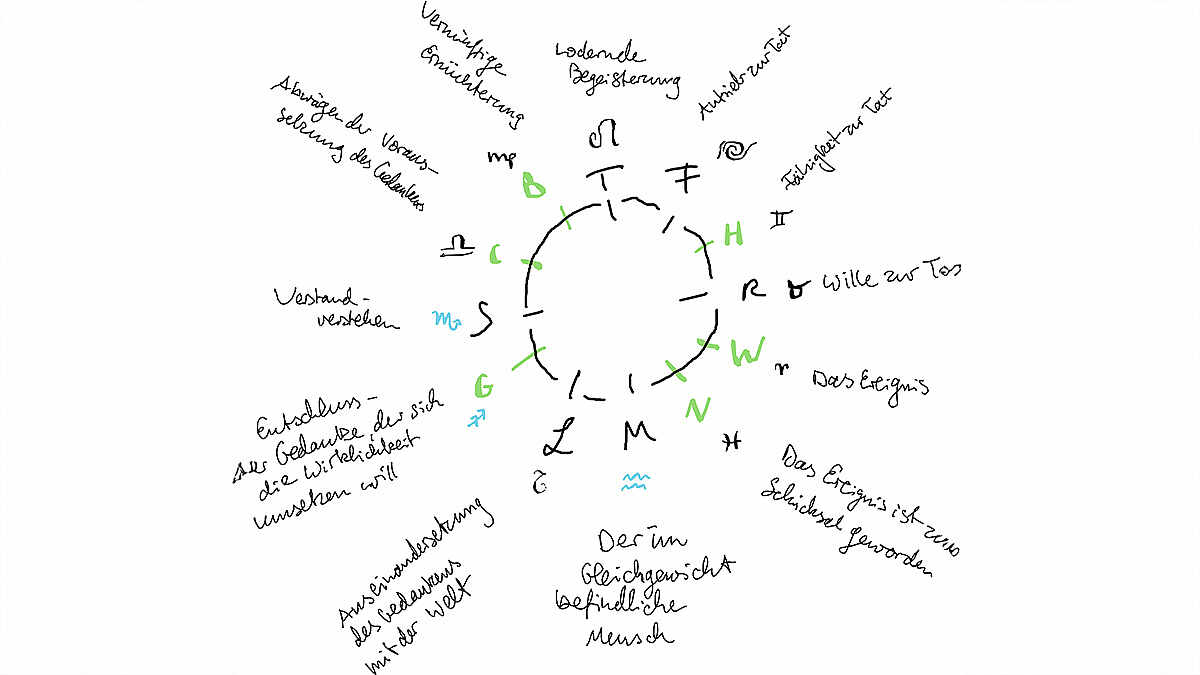 Vernünftige
Ernüchterung
Lodernde
Begeisterung
Antrieb zur Tat
Fähigkeit zur Tat
Abwägen der Voraus-
setzung des Gedankens
♌
♍
B
T
F
♋
H
♊
♎
C
R
♉
Wille zur Tat
Verstand-
verstehen
♏
S
W
♈
Das Ereignis
G
♐
N
♓
L
M
♒
Entschluss-
der Gedanke, der sich
die Wirklichkeit
umsetzen will
Das Ereignis ist zum
Schicksal geworden
Auseinandersetzung
des Gedankens
mit der Welt
Der im
Gleichgewicht
befindliche
Mensch